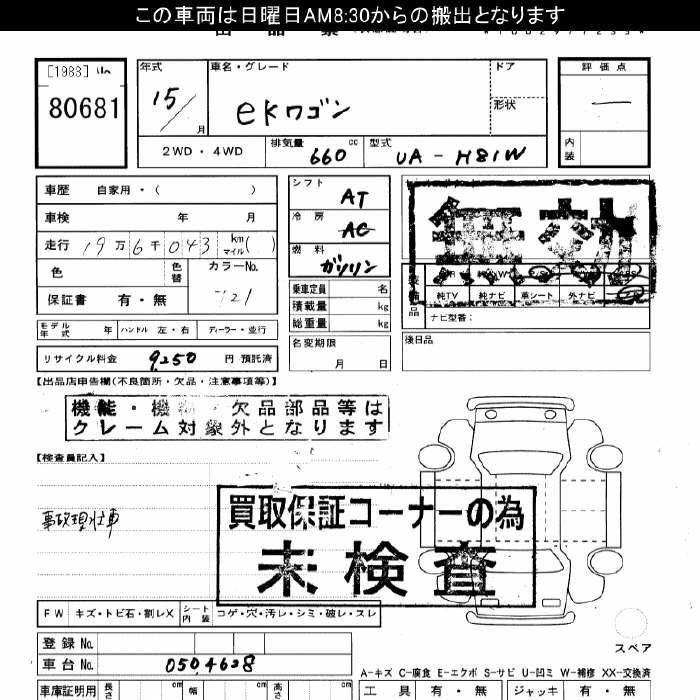 この車両は日曜日AM8:30からの搬出となります
[1983] 山
80681
年式
15/
月
車名・グレード
eKワゴン
ドア
形状
評価点
内装
2WD・4WD
排気量
660 cc
型式
UA-H81W
車歴 自家用・( )
車検 年 月
走行 19万6千043 km マイル( )
色 色替 カラーNo.
保証書 有・無 721
モデル年式 年 ハンドル 左・右 ディーラー・並行
リサイクル料金 9,250 円 預託済
シフト
AT
冷房
AC
燃料
ガソリン
乗車定員 名
積載量 kg
総重量 kg
名変期限
月 日
無効
純TV 純ナビ 革シート 外ナビ
ナビ型番:
後日品
【出品店申告欄(不良箇所・欠品・注意事項等)】
機能・機 ・欠品部品等は
クレーム対象外となります
【検査員記入】
事故現状車
買取保証コーナーの為
未検査
FW キズ・トビ石・割レX シート内装 コゲ・穴・汚レ・シミ・破レ・スレ
登録No.
車台No. 0504628
スペア
A-キズ C-腐食 E-エクボ S-サビ U-凹ミ W-補修 XX-交換済
車庫証明用 長さ cm 幅 cm 高さ cm
工具 有・無 ジャッキ 有・無